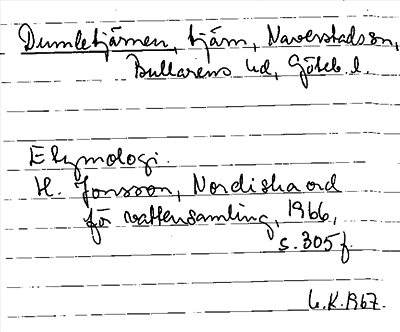 Dumletjärnen, tjärn, Naverstads sn,
Bullarens hd, Göteb. l.
Etymologi.
H. Jonsson, Nordiska ord
för vattensamling, 1966,
s. 305 f.
L.K. 1967.